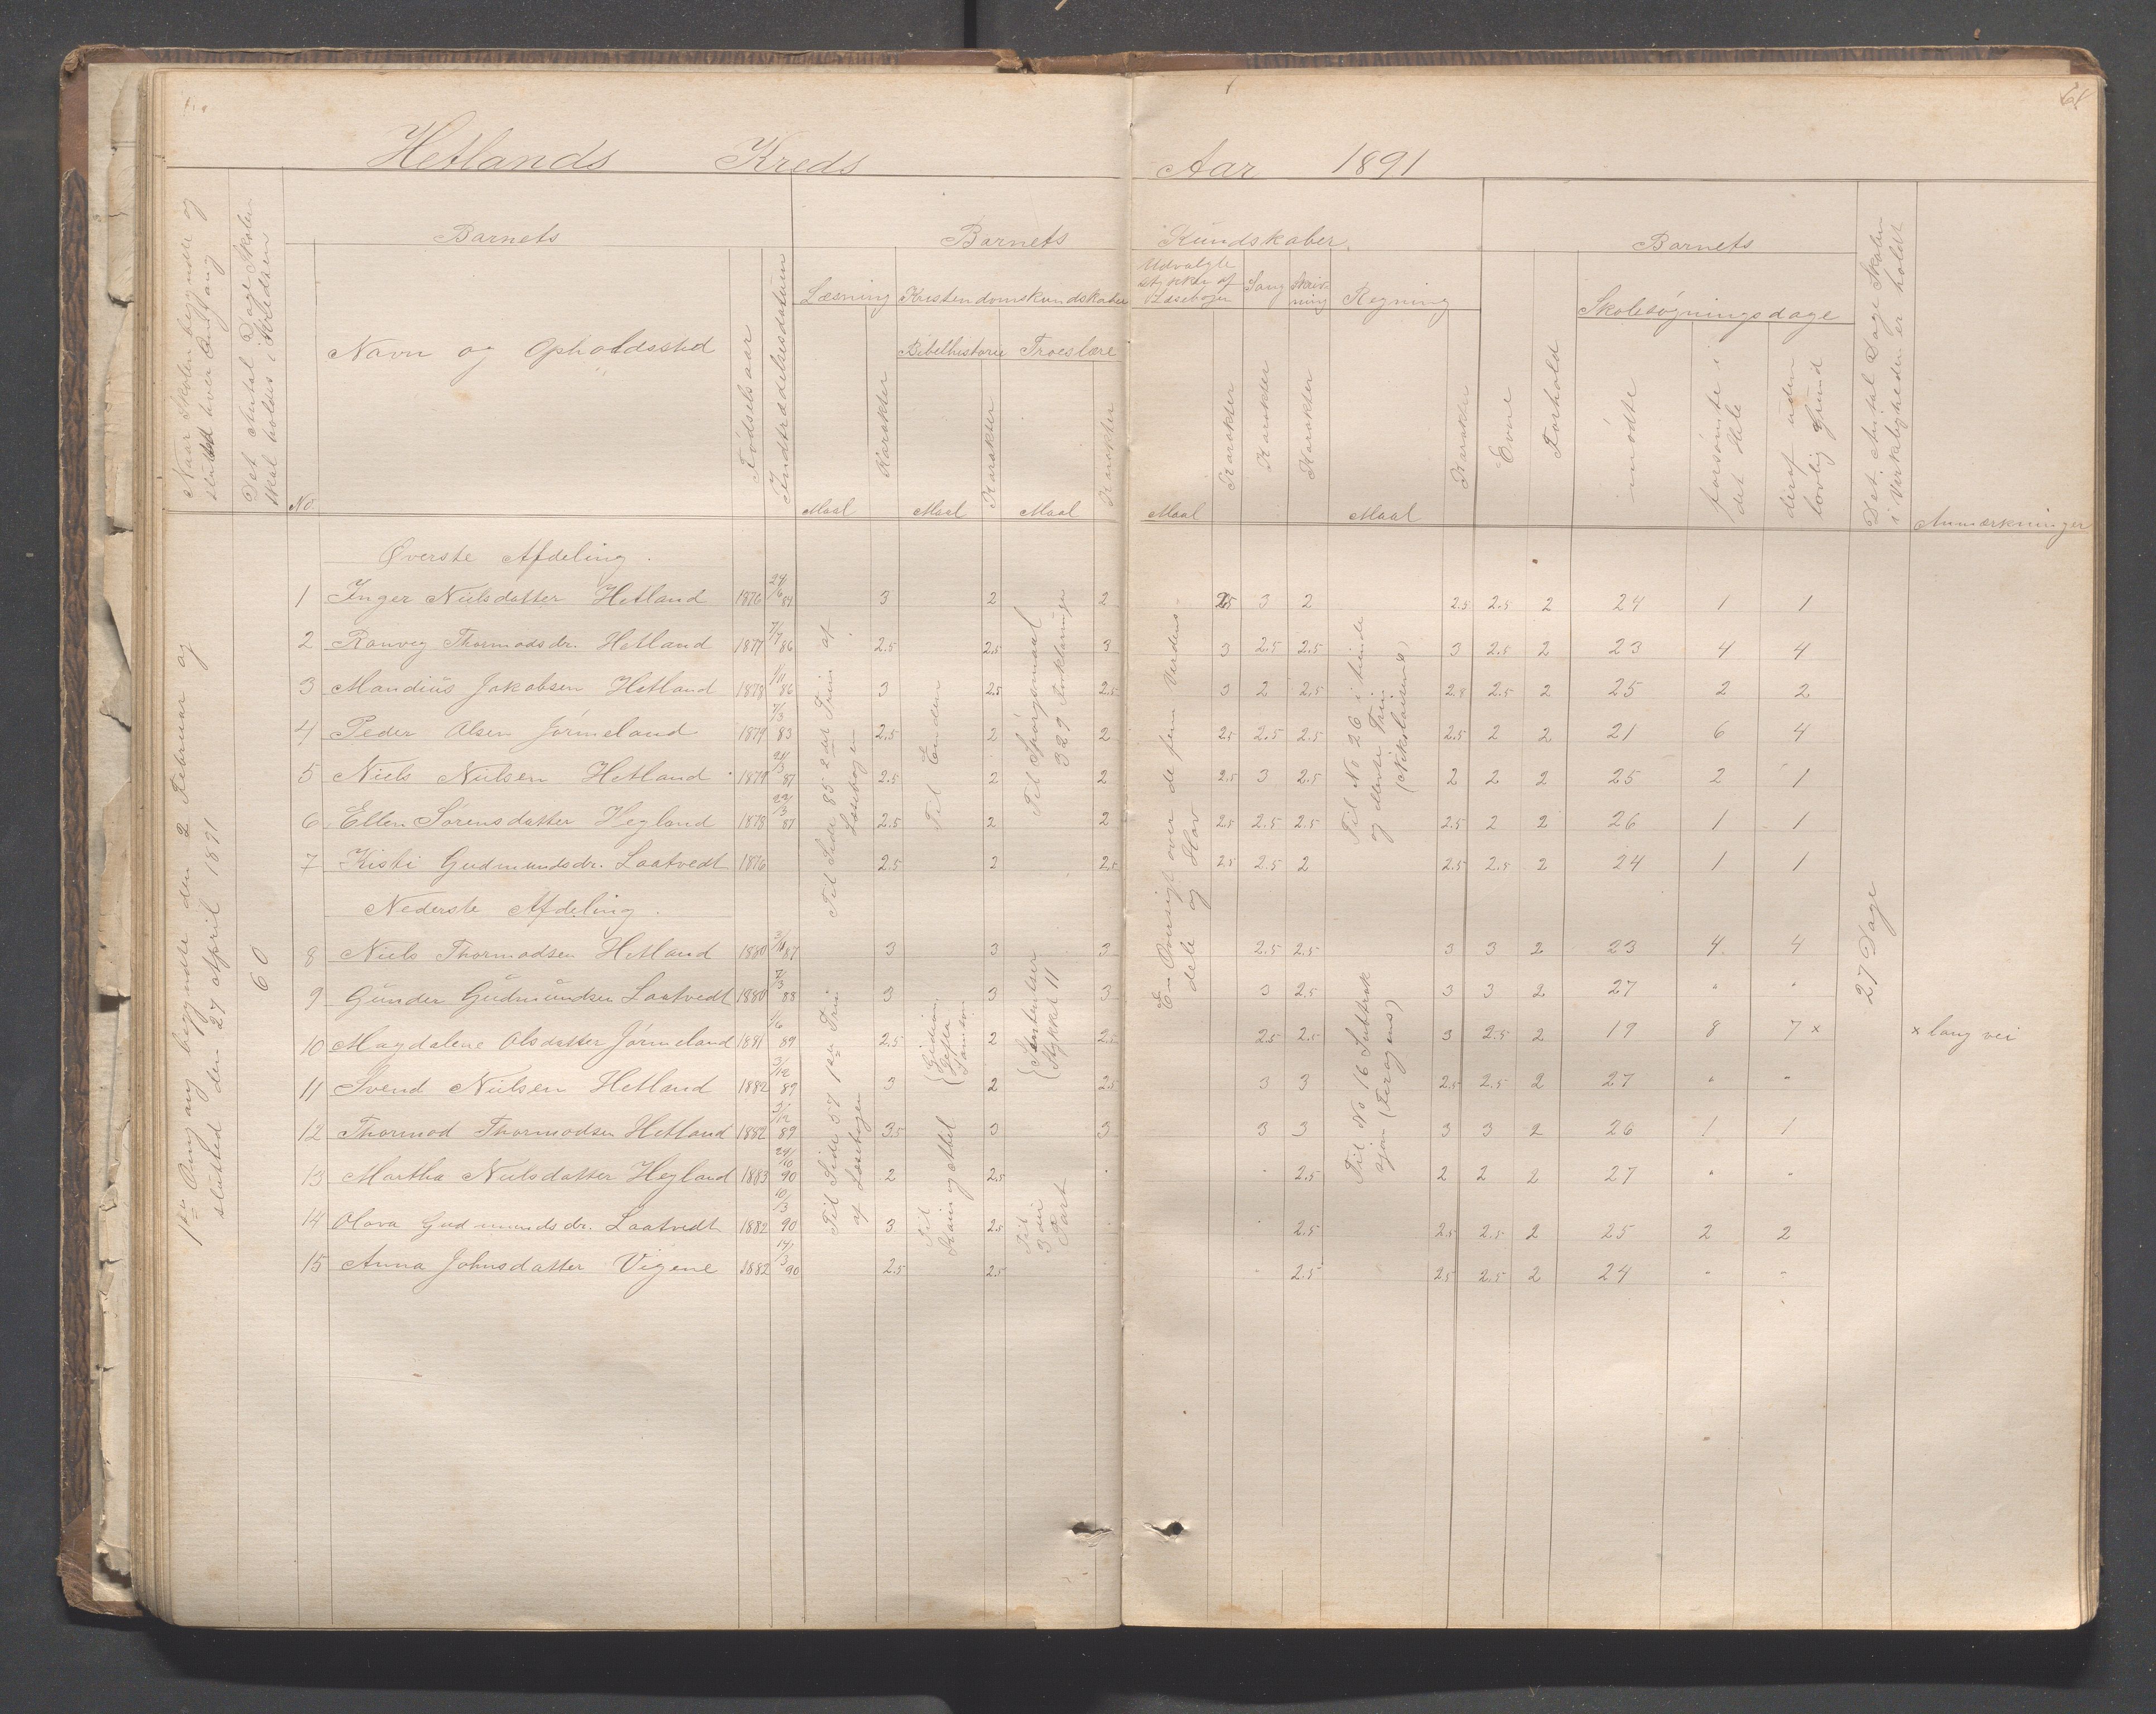 Hetlands Kreds
Aar 1891
64
Naar Skolen begyndte og sluttet hver Omgang
Det Antal Dage Skolen skal holdes i Kredsen
Barnets
Barnets
Kundskaber
Barnets
No.
Navn og Opholdssted
Fødselsaar
Indtrædelsesdatum
Læsning
Kristendomskundskaber
Bibelhistorie
Troeslære
Maal
Karakter
Maal
Karakter
Maal
Karakter
Udvalgte Stykker af Læsebogen
Maal
Karakter
Sang
Karakter
Skrivning
Karakter
Regning
Maal
Karakter
Evne
Forhold
Skolesøgningsdage
mødte
forsømte i det Hele
deraf uden lovlig Grund
Det Antal Dage Skolen i Virkeligheden er holdt
Anmærkninger
1ste Omgang begyndte den 2 Februar og
slutted den 27 April 1891
60
Øverste Afdeling.
1 Inger Nielsdatter Hetland 1876 24/6 84 3 2 2 2.5 3 2 2.5 2.5 2 24 1 1
2 Ranveg Thormodsdr. Hetland 1877 7/7 86 2.5 2.5 3 3 2.5 2.5 3 2.5 2 23 4 4
3 Mandius Jakobsen Hetland 1878 1/11 86 3 2.5 2.5 3 2 2.5 2.8 2.5 2 25 2 2
4 Peder Olsen Jørmeland 1879 7/3 83 2.5 2 2 2.5 2.5 2.5 2.5 2 2 21 6 4
5 Niels Nielsen Hetland 1879 24/3 87 2.5 2 2 2.5 3 2.5 2 2 2 25 2 1
6 Ellen Sørensdatter Hegland 1878 22/3 87 2.5 2 2 2.5 2.5 2.5 2.5 2 2 26 1 1
7 Kisti Gudmundsdr. Laatvedt 1876 2.5 2 2.5 2.5 2.5 2 2.5 2.5 2 24 1 1
Til Side 85 2det Trin af
Læsebogen
Til Enden
Til Spørgsmaal
329 Forklaringer
En Oversigt over de fem Verdens-
dele og Hav
Til No 26 i tiende
og Trin
(Nikolaisens)
Nederste Afdeling.
8 Niels Thormodsen Hetland 1880 3/11 87 3 3 3 2.5 2.5 3 3 2 23 4 4
9 Gunder Gudmundsen Laatvedt 1880 7/3 88 3 3 3 3 2.5 3 3 2 27 " "
10 Magdalene Olsdatter Jørmeland 1881 1/6 89 2.5 2 2.5 2.5 2.5 3 2.5 2 19 8 7 x
x lang vei
11 Svend Nielsen Hetland 1882 3/12 89 3 2 2.5 3 3 2.5 2.5 2 27 " "
12 Thormod Thormodsen Hetland 1882 3/12 89 3.5 3 3 3 3 3 3 2 26 1 1
13 Martha Nielsdatter Hegland 1883 24/10 90 2 2.5 " " 2.5 2 2 2 27 " "
14 Olava Gudmundsdr. Laatvedt 1882 10/3 90 3 2.5 2.5 2.5 2.5 2 25 2 2
15 Anna Johnsdatter Vigene 1882 14/3 90 2.5 2.5 " 2.5 2.5 2.5 2 24 " "
Til Side 57 1ste Trin
af Læsebogen
Gideon,
Jefta
Samson
Til
Kain og Abel
Stykket 11
Til
3die
Part
Til No 16 Subtrak
sjon (Jørgens)
27 Dage